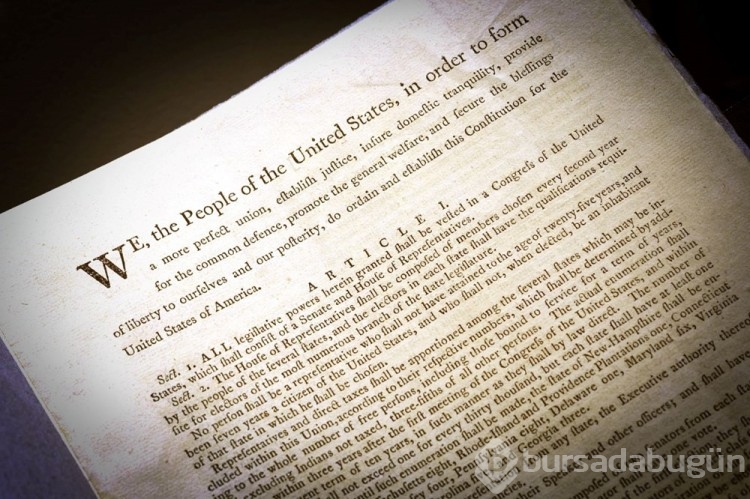 WE, the People of the United States, in order to form
a more perfect union, eſtabliſh juſtice, inſure domeſtic tranquility, provide
for the common defence, promote the general welfare, and ſecure the bleſſings
of liberty to ourſelves and our poſterity, do ordain and eſtabliſh this Conſtitution for the
United States of America.
ARTICLE I.
Sect. 1. ALL legiſlative powers herein granted ſhall be veſted in a Congreſs of the United
States, which ſhall conſiſt of a Senate and Houſe of Repreſentatives.
Sect. 2. The Houſe of Repreſentatives ſhall be compoſed of members choſen every ſecond year
by the people of the ſeveral ſtates, and the electors in each ſtate ſhall have the qualifications requi-
ſite for electors of the moſt numerous branch of the ſtate legiſlature.
No perſon ſhall be a repreſentative who ſhall not have attained to the age of twenty-five years, and
been ſeven years a citizen of the United States, and who ſhall not, when elected, be an inhabitant
of that ſtate in which he ſhall be choſen.
Repreſentatives and direct taxes ſhall be apportioned among the ſeveral ſtates which may be in-
cluded within this Union, according to their reſpective numbers, which ſhall be determined by add-
ing to the whole number of free perſons, including thoſe bound to ſervice for a term of years,
excluding Indians not taxed, three-fifths of all other perſons. The actual enumeration ſhall
within three years after the firſt meeting of the Congreſs of the United States, and within
in ſuch manner as they ſhall by law direct. The number of
ſhall not exceed one for every thirty thouſand, but each ſtate ſhall have at leaſt one
until ſuch enumeration ſhall be made, the ſtate of New-Hampſhire ſhall be en-
eight, Rhode-Iſland and Providence Plantations one, Connecticut
four, Pennſylvania eight, Delaware one, Maryland ſix, Virginia
Georgia three.
any ſtate, the Executive authority thereof
and other officers; and ſhall have
ſenators from each ſtate
one vote.
bursadabugün